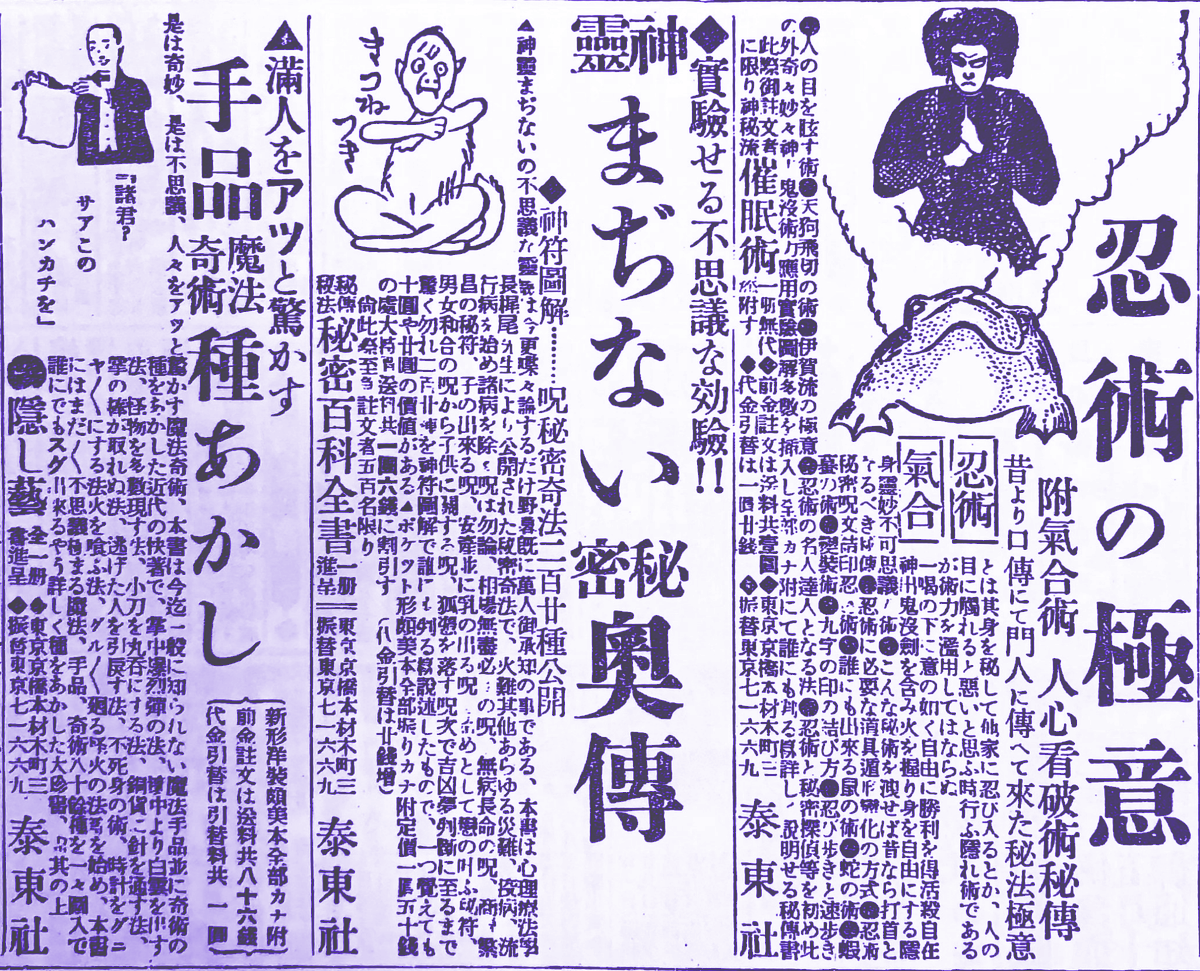 忍術の極意
附氣合術 人心看破術秘傳
昔より口傳にて門人に傳へて來た秘法極意
忍術
とは其身を秘して他家に忍び入るとか、人の
目に觸れると悪いと思ふ時行ふ隱れ術である
が術力を濫用してはならぬ
氣合
一喝の下に意の如く自由に勝利を得活殺自在
神出鬼没劍を含み火を握り身を自由にする隱
身靈妙不可思議の術●こんな秘術を洩せば昔なら打首と
なるべき秘傳●忍術に必要な道具遁形變化の方式●忍術
秘密呪文諸印忍術●誰にも出來る鼠の術●蛇の術●蝦
蟇の術●變裝術●九字の印の結び方●忍び歩きと速歩き
●忍術の名人達人となる法●忍術と秘密探偵等を初め此
●人の目を眩す術●天狗飛切の術●伊賀流の極意
の外奇々妙々神出鬼没術の應用實驗圖解多數を挿入し全部カナ附にて誰にも判る樣詳しく說明せる秘傳書
此際御註文者
に限り神秘流
催眠術
一册無代
添附す
◆前金註文は送料共壹圓◆東京京橋本材木町三
◆代金引替は一圓廿錢
◆振替東京七一六六九
泰東社
◆實驗せる不思議な効驗!!
神靈まぢない秘密奥傳
◆神符圖解………呪秘密奇法二百廿種公開
▲神聖まぢないの不思議な靈驗は今更喋々論するだけ野暮既に萬人御承知の事である、本書は心理療法學
長梶尾先生により公開された秘密奇法で、火難其他あらゆる災難、疫病、流
行病を始め諸病を除く呪は勿論、相場無盡必勝の呪、無病長命の呪、商賣繁
昌の秘符、子の出來る呪、安産並に乳の出る呪を始めとして戀の叶ふ秘符、
男女和合の呪から子供に關する呪、狐憑を落す呪次で吉凶夢判斷に至るまで
驚く勿れ二百廿種を神符圖解で誰にも判る樣說述したもので、一つ覺えても
十圓や廿圓の價値がある▲ポケット形頗美本全部振りカナ附定價一圓五十錢
の處大特價送料共一圓六錢に割引す（代金引替は廿錢增）
尙此際至急註文者五百名限り
秘傳
秘法
秘密百科全書
一册
進呈
東京京橋本材木町三
振替東京七一六六九
泰東社
きつね
つき
▲滿人をアツと驚かす
手品
魔法
奇術
種あかし
新形洋裝頗美本全部カナ附
前金註文は送料共八十六錢
代金引替は引替料共一圓
是は奇妙、是は不思議、人々をアッと
驚かす魔法奇術、本書は今迄一般に知られない魔法手品並に奇術の
種をあかした近代の快著で、掌中爆烈彈の法、鐵中より白雲を出す
法、怪物を多數現す法、小刀を丸呑にする法、銅貨に針を通す法、
掌の棒が取れぬ法、逃げた人を引戻す法、不死身の術、時計をグニ
ャ〱にする法火を喰ふ法、グル〱廻る怪火の法等を始め、本書
にはまだ〱不思議極まる魔法、手品、奇術八十餘種を一々圖入で
誰にでもスグ出來るやう詳しく種をあかした大珍書、尙其の上
●隱し藝
全一册
書進呈
◆東京京橋本材木町三
◆振替東京七一六六九
泰東社
『諸君?
サアこの
ハンカチを』